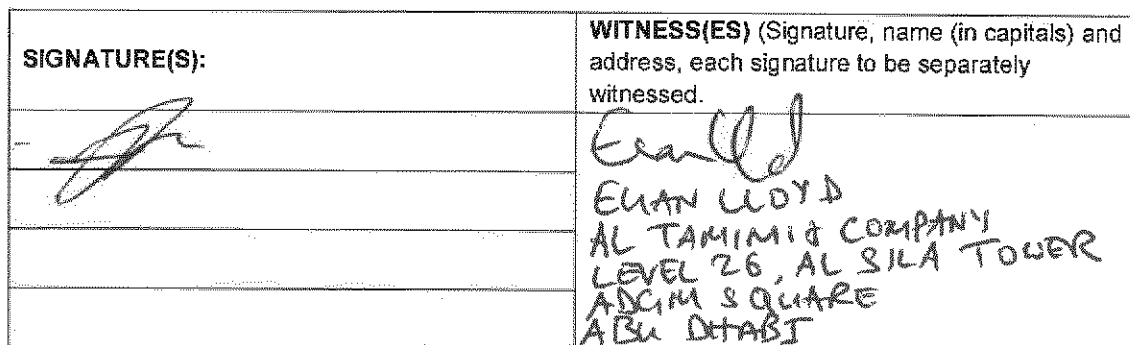 SIGNATURE(S):
WITNESS(ES) (Signature, name (in capitals) and
address, each signature to be separately
witnessed.
EUAN LLOYD
AL TAMIMI & COMPANY
LEVEL 26, AL SILA TOWER
ADGM SQUARE
ABU DHABI